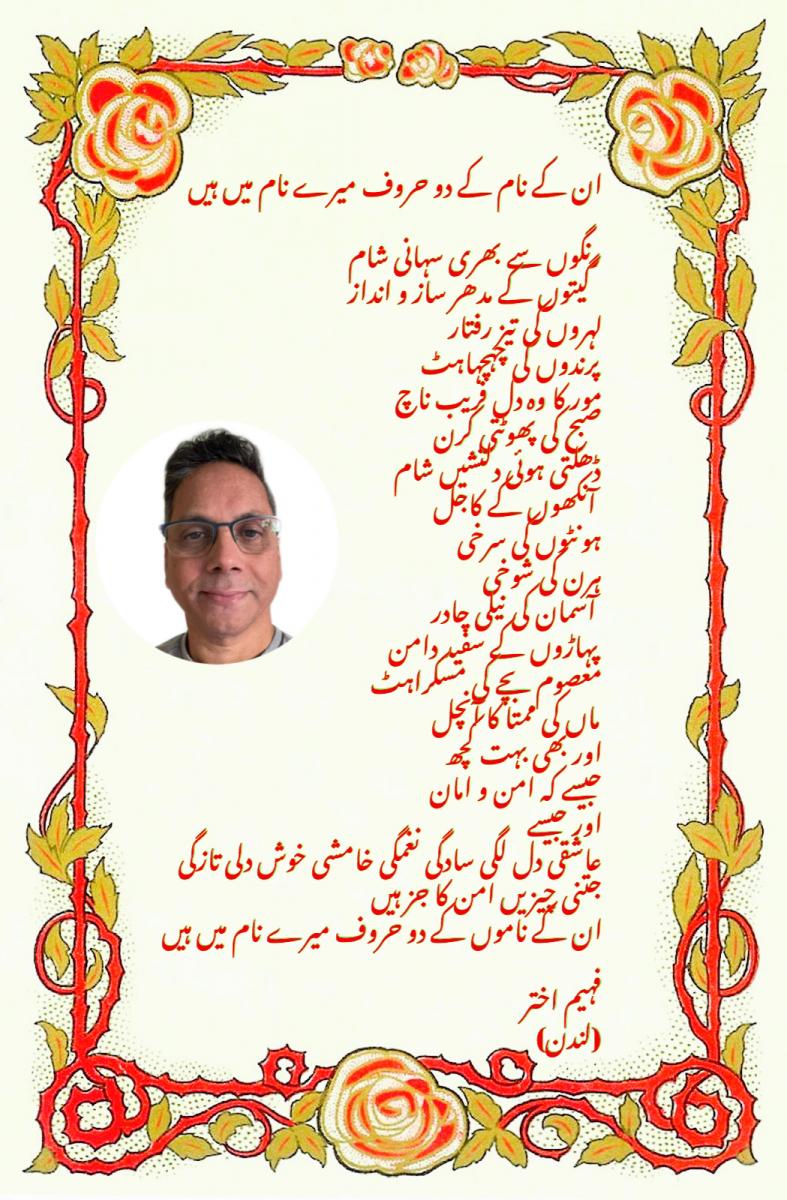 ان کے نام کے دو حروف میرے نام میں ہیں
رنگوں سے بھری سہانی شام
گیتوں کے مدھر ساز و انداز
لہروں کی تیز رفتار
پرندوں کی چہچہاہٹ
مور کا وہ دل فریب ناچ
صبح کی پھوٹتی کرن
ڈھلتی ہوئی دلنشیں شام
آنکھوں کے کاجل
ہونٹوں کی سرخی
ہرن کی شوخی
آسمان کی نیلی چادر
پہاڑوں کے سفید دامن
معصوم بچے کی مسکراہٹ
ماں کی ممتا کا آنچل
اور بھی بہت کچھ
جیسے کہ امن و امان
اور جیسے
عاشقی دل لگی سادگی نغمگی خامشی خوش دلی تازگی
جتنی چیزیں امن کا جز ہیں
ان کے ناموں کے دو حروف میرے نام میں ہیں
فہیم اختر
(لندن)